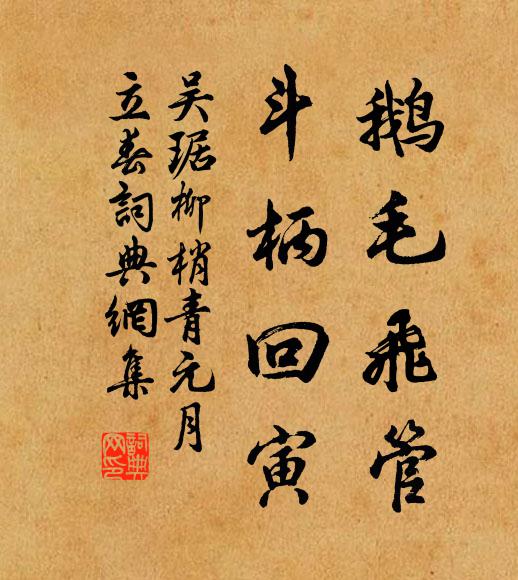 鹅毛飛管
斗柄回寅
吴琚柳梢青元月
立春詞典網集
詞典网印